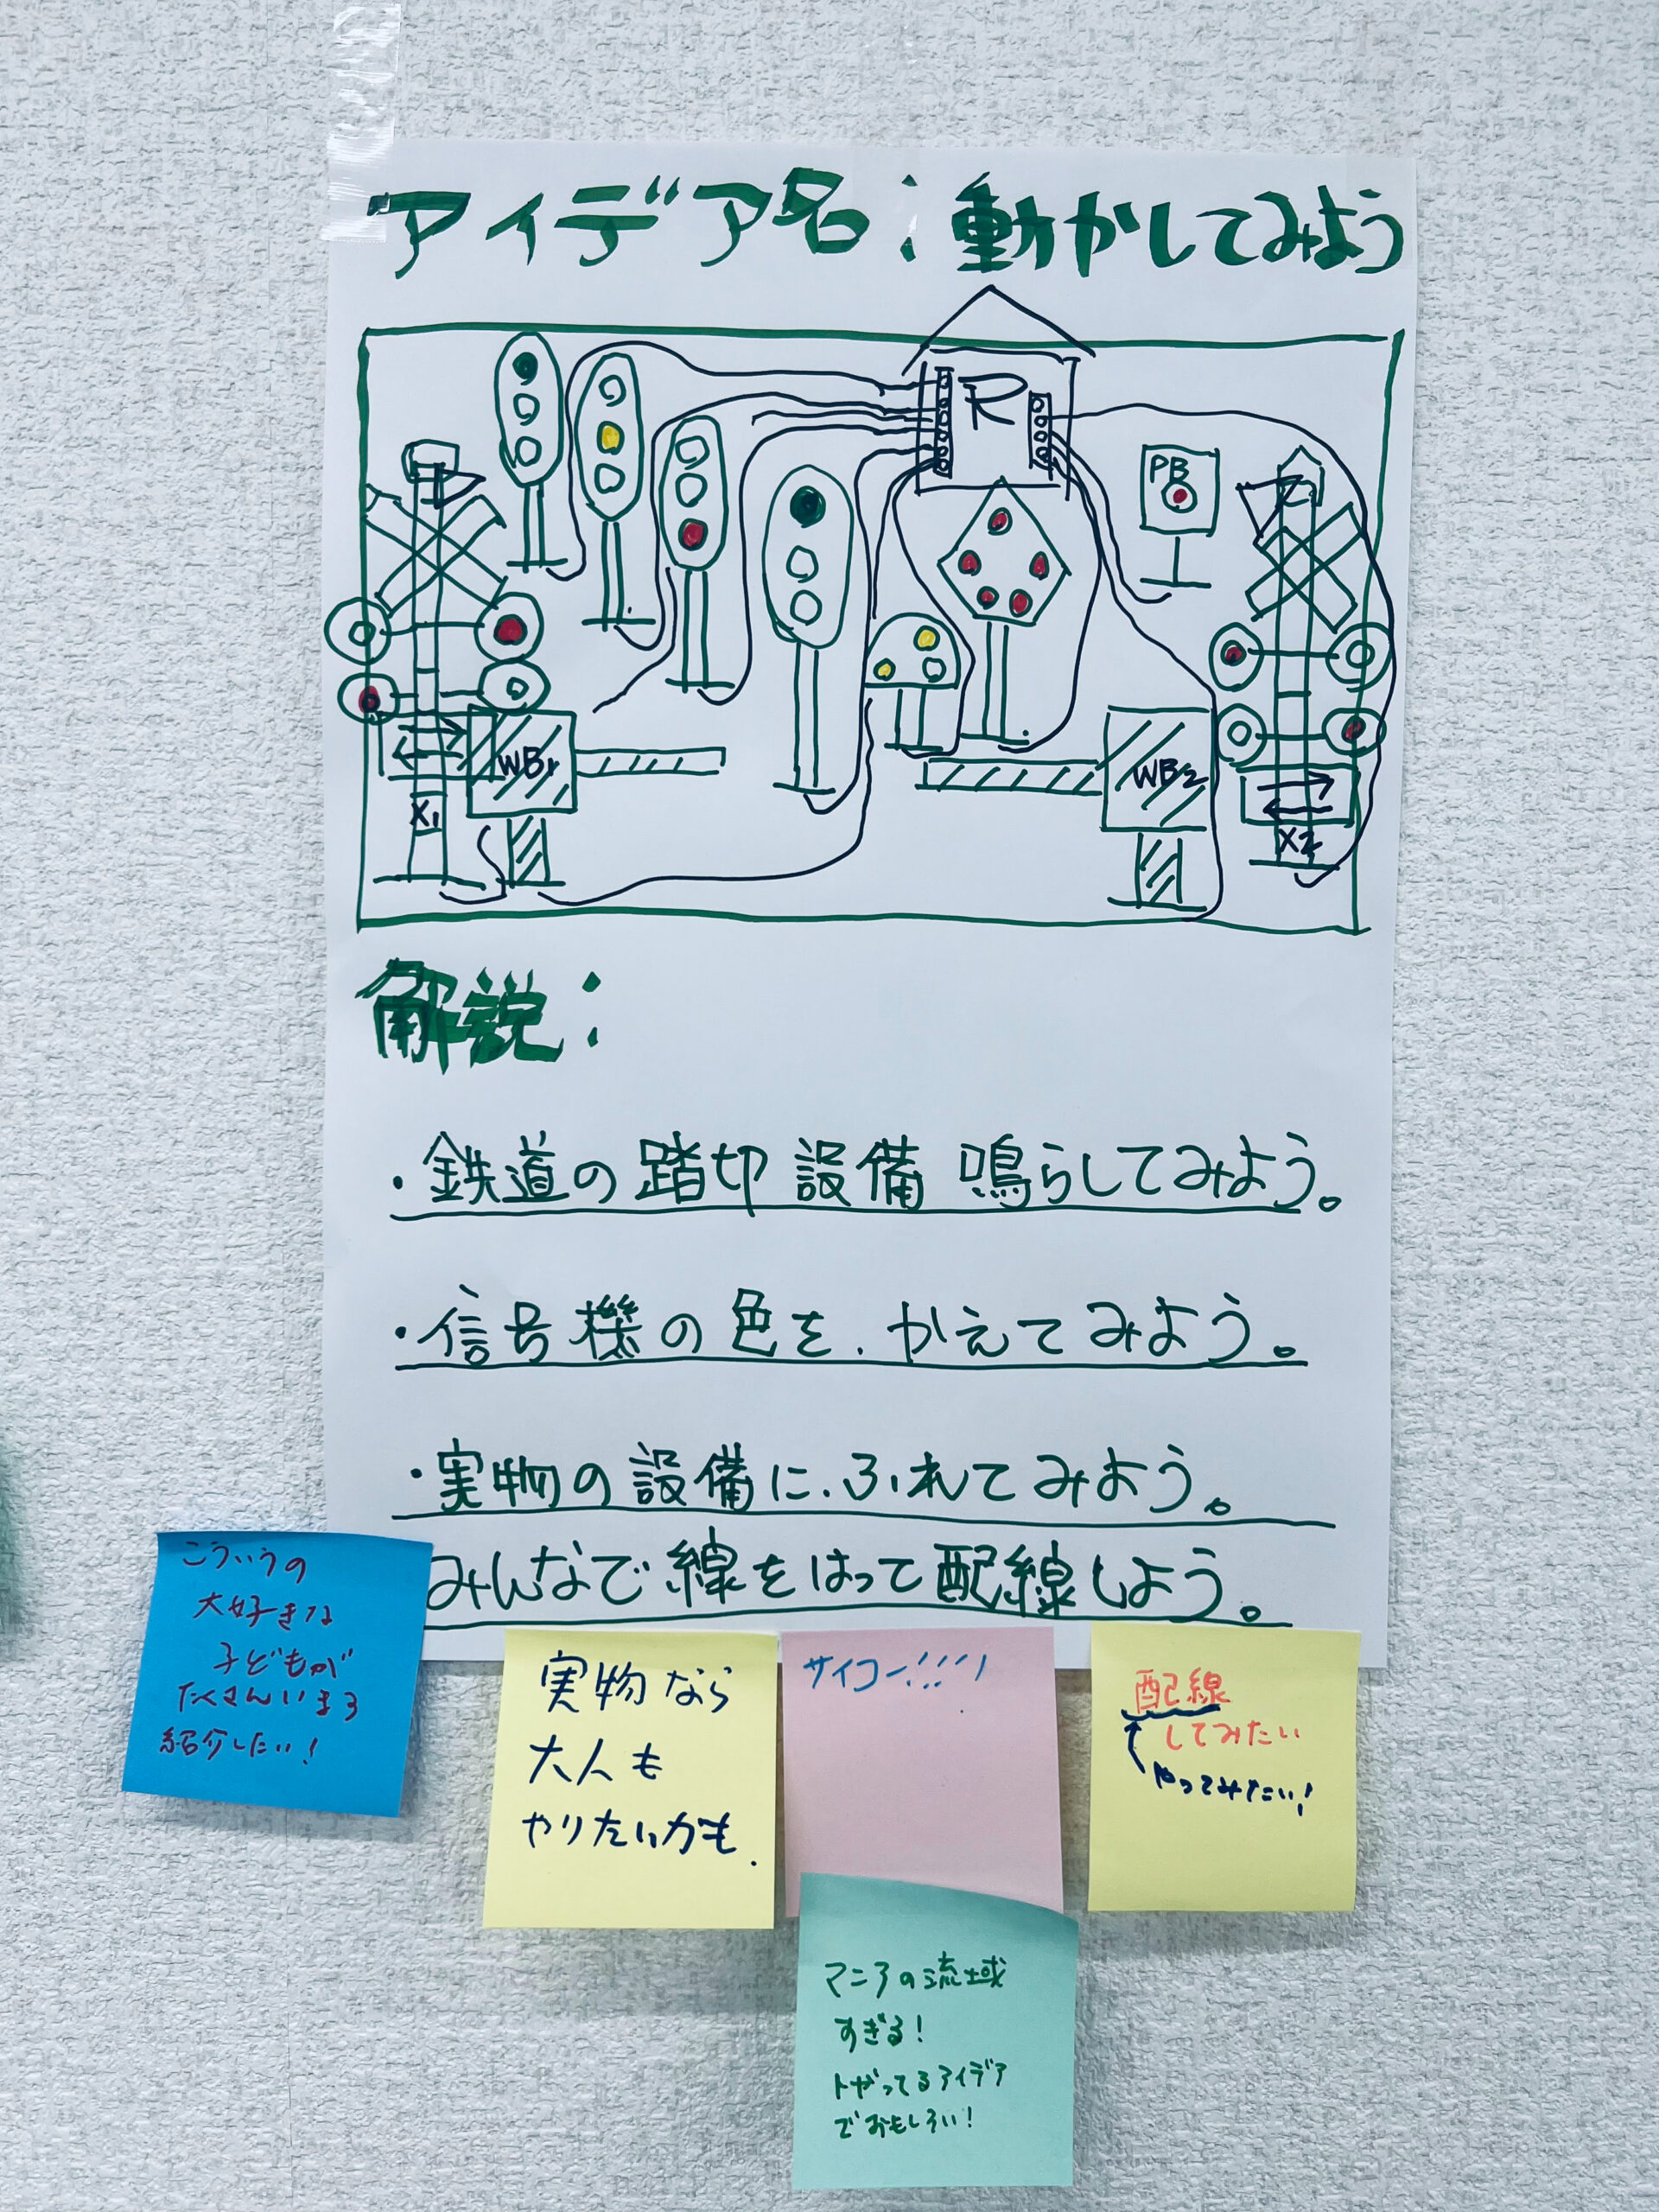 アイデア名:動かしてみよう
R
PB
WB1
WB2
X1
X2
解説:
・鉄道の踏切設備鳴らしてみよう。
・信号機の色を、かえてみよう。
・実物の設備に、ふれてみよう。
みんなで線をはって配線しよう。
こういうの
大好きな
子どもが
たくさんいます
紹介したい!
実物なら
大人も
やりたいかも.
サイコー!!!!
配線
してみたい
やってみたい!
マニアの流域
すぎる!
トガってるアイデア
でおもしろい!